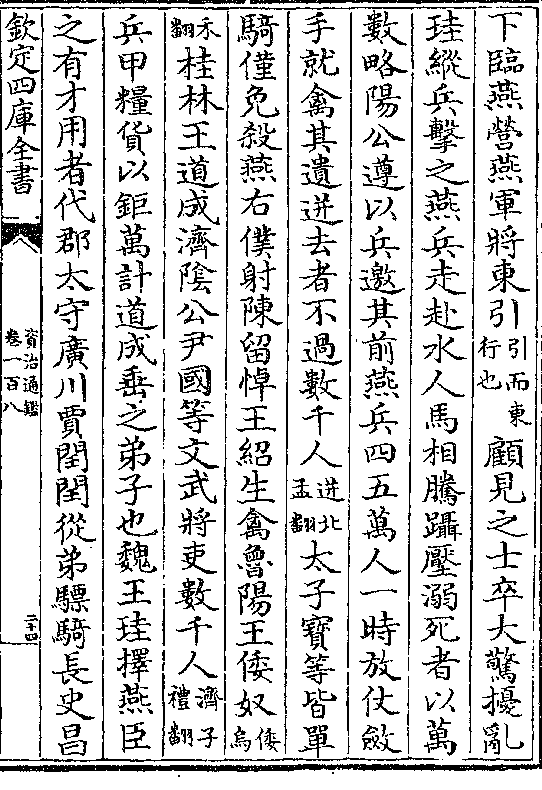 下臨燕營燕軍將東引引而東行也顧見之士卒大驚擾亂
珪縱兵擊之燕兵走赴水人馬相騰躡壓溺死者以萬
數略陽公遵以兵邀其前燕兵四五萬人一時放仗斂
手就禽其遺迸去者不過數千人迸北孟翻太子寶等皆單
騎僅免殺燕右僕射陳留悼王紹生禽魯陽王倭奴倭烏
禾翻桂林王道成濟陰公尹國等文武將吏數千人濟子禮翻
兵甲糧貨以鉅萬計道成垂之弟子也魏王珪擇燕臣
之有才用者代郡太守廣川賈閏閏從弟驃騎長史昌
欽定四庫全書
資治通鑑
卷一百八
二十四